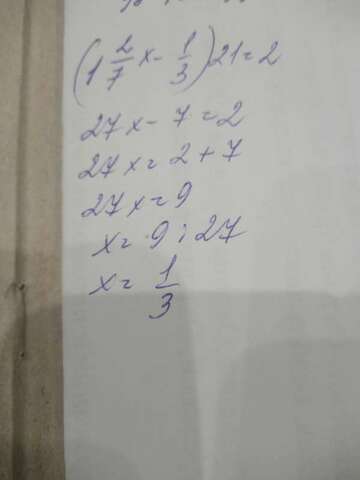 (1 2/7 x - 1/3) 21 = 2
27x - 7 = 2
27x = 2 + 7
27x = 9
x = 9 : 27
x = 1/3